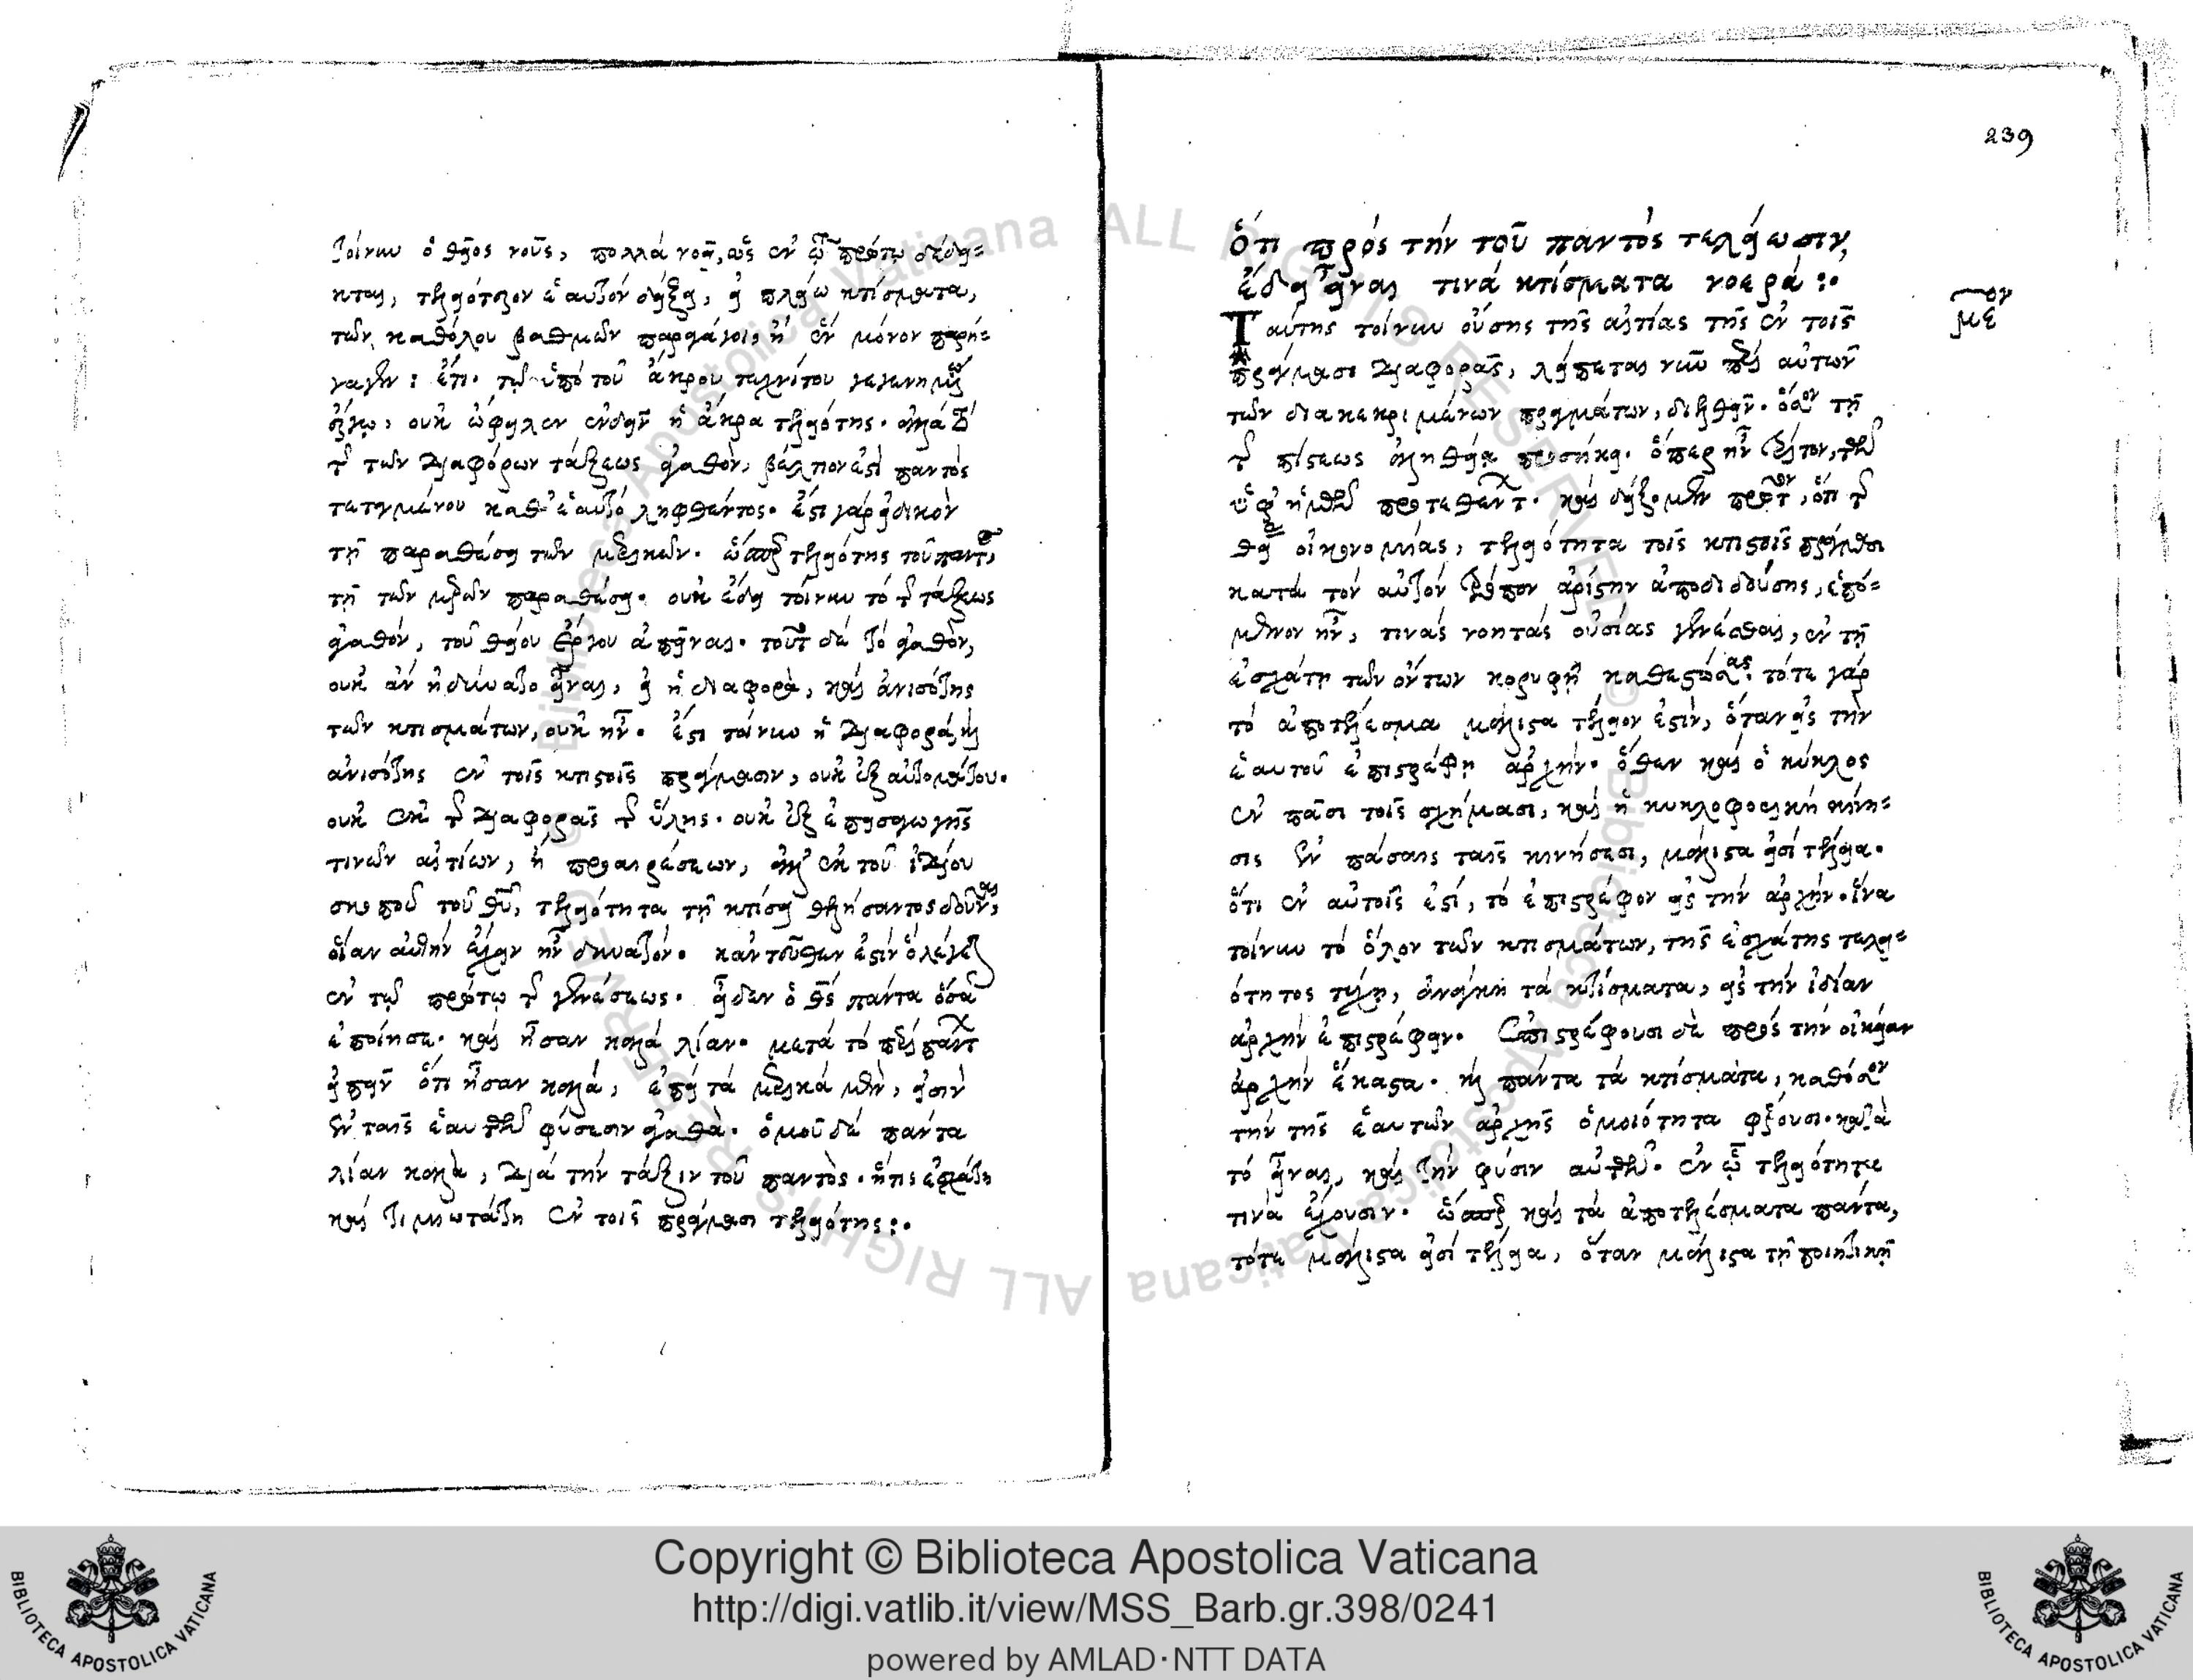 τοίνυν ὁ θεῖος νοῦς, πολλὰ νοεῖ, ὡς ἐν τῷ πρώτῳ δέδει=
κται, τελειότερον ἑαυτὸν δείξει, εἰ πλείω κτίσματα,
τῶν καθόλου βαθμῶν παραγάγοι, ἢ ἓν μόνον παρή=
γαγεν: ἔτι. τῷ ὑπὸ τοῦ ἄκρου τεχνίτου γεγενημένῳ
ἔργῳ, οὐκ ὤφειλεν ἐνδεῖν ἡ ἄκρα τελειότης. ἀλλὰ τὸ
τῆς τῶν διαφόρων τάξεως ἀγαθὸν, βέλτιον ἐστὶ παντὸς
τεταγμένου καθ' ἑαυτὸ ληφθέντος. ἔστι γὰρ εἰδικὸν
τῇ παραθέσει τῶν μερικῶν. ὥσπερ τελειότης τοῦ παντὸς,
τῇ τῶν μερῶν παραθέσει. οὐκ ἔδει τοίνυν τὸ τῆς τάξεως
ἀγαθὸν, τοῦ θείου ἔργου ἀπεῖναι. τοῦτο δὲ τὸ ἀγαθὸν,
οὐκ ἂν ἠδύνατο εἶναι, εἰ ἡ διαφορὰ, καὶ ἀνισότης
τῶν κτισμάτων, οὐκ ἦν. ἔστι τοίνυν ἡ διαφορὰ, καὶ
ἀνισότης ἐν τοῖς κτιστοῖς πράγμασιν, οὐκ ἐξ αὐτομάτου.
οὐκ ἐκ τῆς διαφορᾶς τῆς ὕλης. οὐκ ἐξ ἐπεισαγωγῆς
τινῶν αἰτίων, ἢ προαιρέσεων, ἀλλ' ἐκ τοῦ ἰδίου
σκοποῦ τοῦ θεοῦ, τελειότητα τῇ κτίσει θελήσαντος δοῦναι,
οἵαν αὐτὴν ἔχειν ἦν δυνατόν. κἀντεῦθεν ἐστὶν ὃ λέγεται
ἐν τῷ πρώτῳ τῆς γενέσεως. εἶδεν ὁ θεὸς πάντα ὅσα
ἐποίησε. καὶ ἦσαν καλὰ λίαν. μετὰ τὸ περὶ πάντων
εἰπεῖν ὅτι ἦσαν καλὰ, ἐπεὶ τὰ μερικὰ μὲν, εἰσὶν
ἐν ταῖς ἑαυτῶν φύσεσιν ἀγαθὰ. ὁμοῦ δὲ πάντα
λίαν καλὰ, διὰ τὴν τάξιν τοῦ παντὸς. ἥτις ἐσχάτη
καὶ τιμιωτάτη ἐν τοῖς πράγμασι τελειότης:.
239
ὅτι πρὸς τὴν τοῦ παντὸς τελείωσιν,
ἔδει εἶναι τινὰ κτίσματα νοερά:.
με^ον
Ταύτης τοίνυν οὔσης τῆς αἰτίας τῆς ἐν τοῖς
πράγμασι διαφορᾶς, λείπεται νῦν περὶ αὐτῶν
τῶν διακεκριμένων πραγμάτων, διελθεῖν. ὅσον τῇ
τῆς πίστεως ἀληθείᾳ προσήκει. ὅπερ ἦν τρίτον, τῶν
ὑφ' ἡμῶν προτεθέντων. καὶ δείξομεν πρῶτον, ὅτι τῆς
θείας οἰκονομίας, τελειότητα τοῖς κτιστοῖς πράγμασι
κατὰ τὸν αὐτὸν τρόπον ἀρίστην ἀποδιδούσης, ἑπό=
μενον ἦν, τινὰς νοητὰς οὐσίας γενέσθαι, ἐν τῇ
ἐσχάτῃ τῶν ὄντων κορυφῇ καθεστώσας. τότε γὰρ
τὸ ἀποτέλεσμα μάλιστα τέλειον ἐστὶν, ὅταν εἰς τὴν
ἑαυτοῦ ἐπιστρέφῃ ἀρχήν. ὅθεν καὶ ὁ κύκλος
ἐν πᾶσι τοῖς σχήμασι, καὶ ἡ κυκλοφορικὴ κίνη=
σις ἐν πάσαις ταῖς κινήσεσι, μάλιστα εἰσὶ τέλεια.
ὅτι ἐν αὐτοῖς ἐστὶ, τὸ ἐπιστρέφον εἰς τὴν ἀρχήν. ἵνα
τοίνυν τὸ ὅλον τῶν κτισμάτων, τῆς ἐσχάτης τελει=
ότητος τύχῃ, ἀνάγκη τὰ κτίσματα, εἰς τὴν ἰδίαν
ἀρχὴν ἐπιστρέφειν. ἐπιστρέφουσι δὲ πρὸς τὴν οἰκείαν
ἀρχὴν ἕκαστα. καὶ πάντα τὰ κτίσματα, καθόσον
τὴν τῆς ἑαυτῶν ἀρχῆς ὁμοιότητα φέρουσι. κατὰ
τὸ εἶναι, καὶ τὴν φύσιν αὐτῶν. ἐν ᾧ τελειότητα
τινὰ ἔχουσιν. ὥσπερ καὶ τὰ ἀποτελέσματα πάντα,
τότε μάλιστα εἰσὶ τέλεια, ὅταν μάλιστα τῇ ποιητικῇ
Copyright © Biblioteca Apostolica Vaticana
http://digi.vatlib.it/view/MSS_Barb.gr.398/0241
powered by AMLAD·NTT DATA